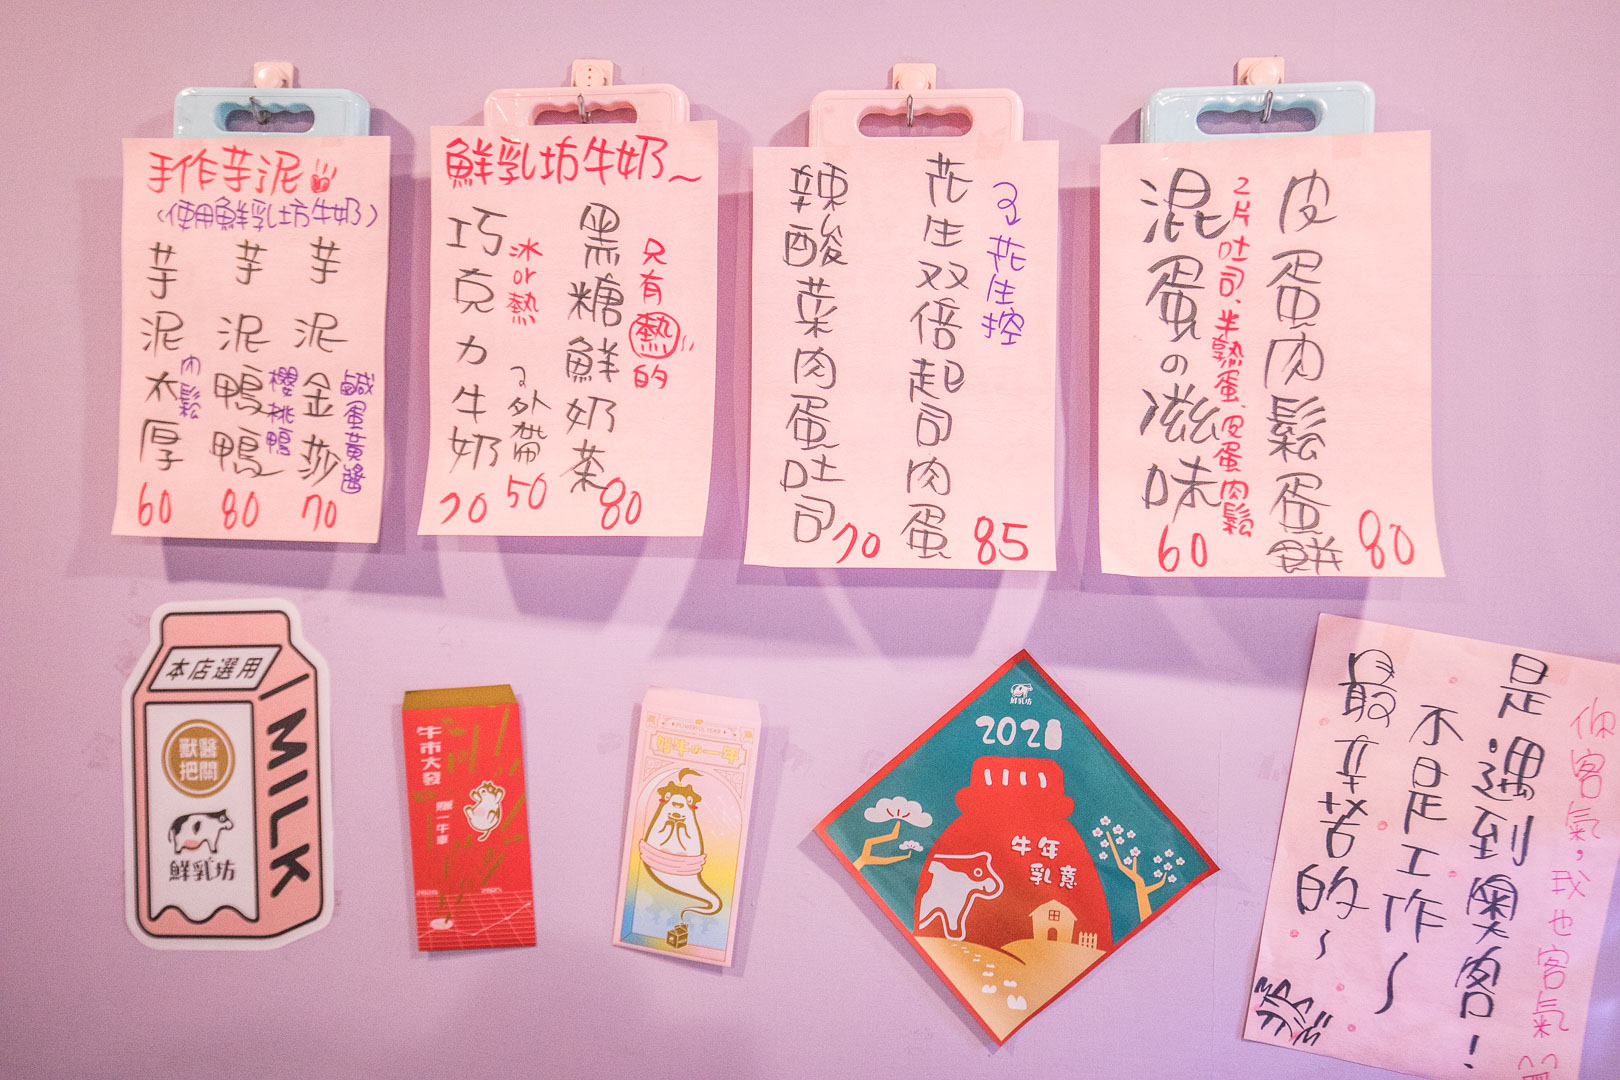 手作芋泥
(使用鮮乳坊牛奶)
芋泥金莎
鹹蛋黃醬
70
芋泥鴨鴨
櫻桃鴨
80
芋泥太厚
肉鬆
60
鮮乳坊牛奶~
只有熱的
黑糖鮮奶茶
80
外帶
50
冰or熱
巧克力牛奶
70
花生控
花生双倍起司肉蛋
85
辣酸菜肉蛋吐司
70
皮蛋肉鬆蛋餅
80
2片吐司、半熟蛋、皮蛋、肉鬆
混蛋の滋味
60
本店選用
MILK
獸醫
把關
鮮乳坊
牛市大發
賺一牛車
2020
2021
POWERFUL YEAR
牛の一年
鮮乳坊
2021
牛年
乳意
你客氣,我也客氣
是遇到奧客!
不是工作~
最辛苦的~